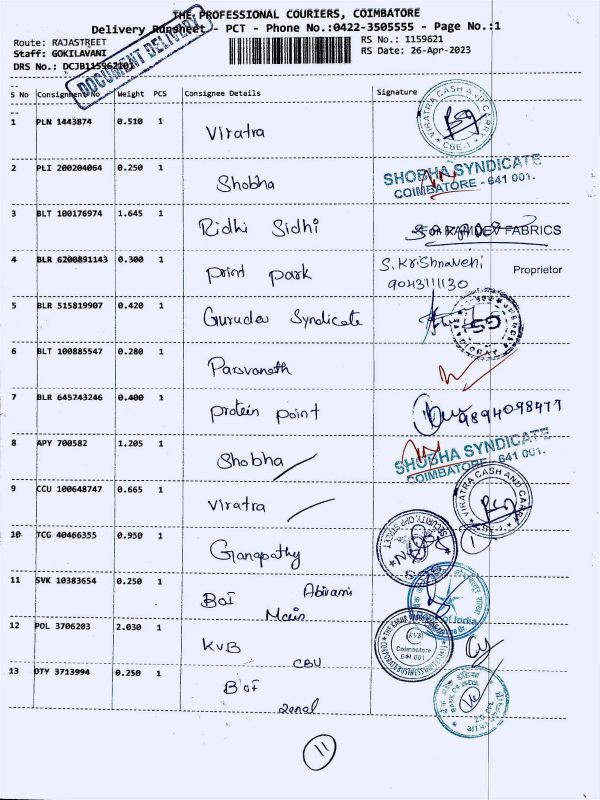 THE PROFESSIONAL COURIERS, COIMBATORE
Delivery Runsheet - PCT - Phone No.:0422-3505555 - Page No.:1
Route: RAJASTREET
Staff: GOKILAVANI
DRS No.: DCJB115962101
RS No.: 1159621
RS Date: 26-Apr-2023
DOCUMENT DELIVERY
S No Consignment No Weight PCS Consignee Details Signature
1 PLN 1443874 0.510 1 Viratra
VIRATRA CASH AND CARRY CBE-1
2 PLI 200204064 0.250 1 Shobha
SHOBHA SYNDICATE
COIMBATORE - 641 001.
3 BLT 100176974 1.645 1 Ridhi Sidhi
FOR RAMDEV FABRICS
4 BLR 6200891143 0.300 1 print park
S. Krishnaveni
9043111130
Proprietor
5 BLR 515819907 0.420 1 Gurudev Syndicate
GSI
6 BLT 100885547 0.280 1 Parsvanath
7 BLR 645743246 0.400 1 protein point
8 APY 700582 1.205 1 Shobha
SHOBHA SYNDICATE
COIMBATORE - 641 001.
9 CCU 100648747 0.665 1 Viratra
VIRATRA CASH AND CARRY CBE-1
10 TCG 40466355 0.950 1 Ganapathy
1
11 SVK 10383654 0.250 1 BOI Abirami
Main
of India
12 POL 3706203 2.030 1 KVB
CBU
KVB
Coimbatore
641 001
13 DTY 3713994 0.250 1 BOI
zonal
BANK OF INDIA
11